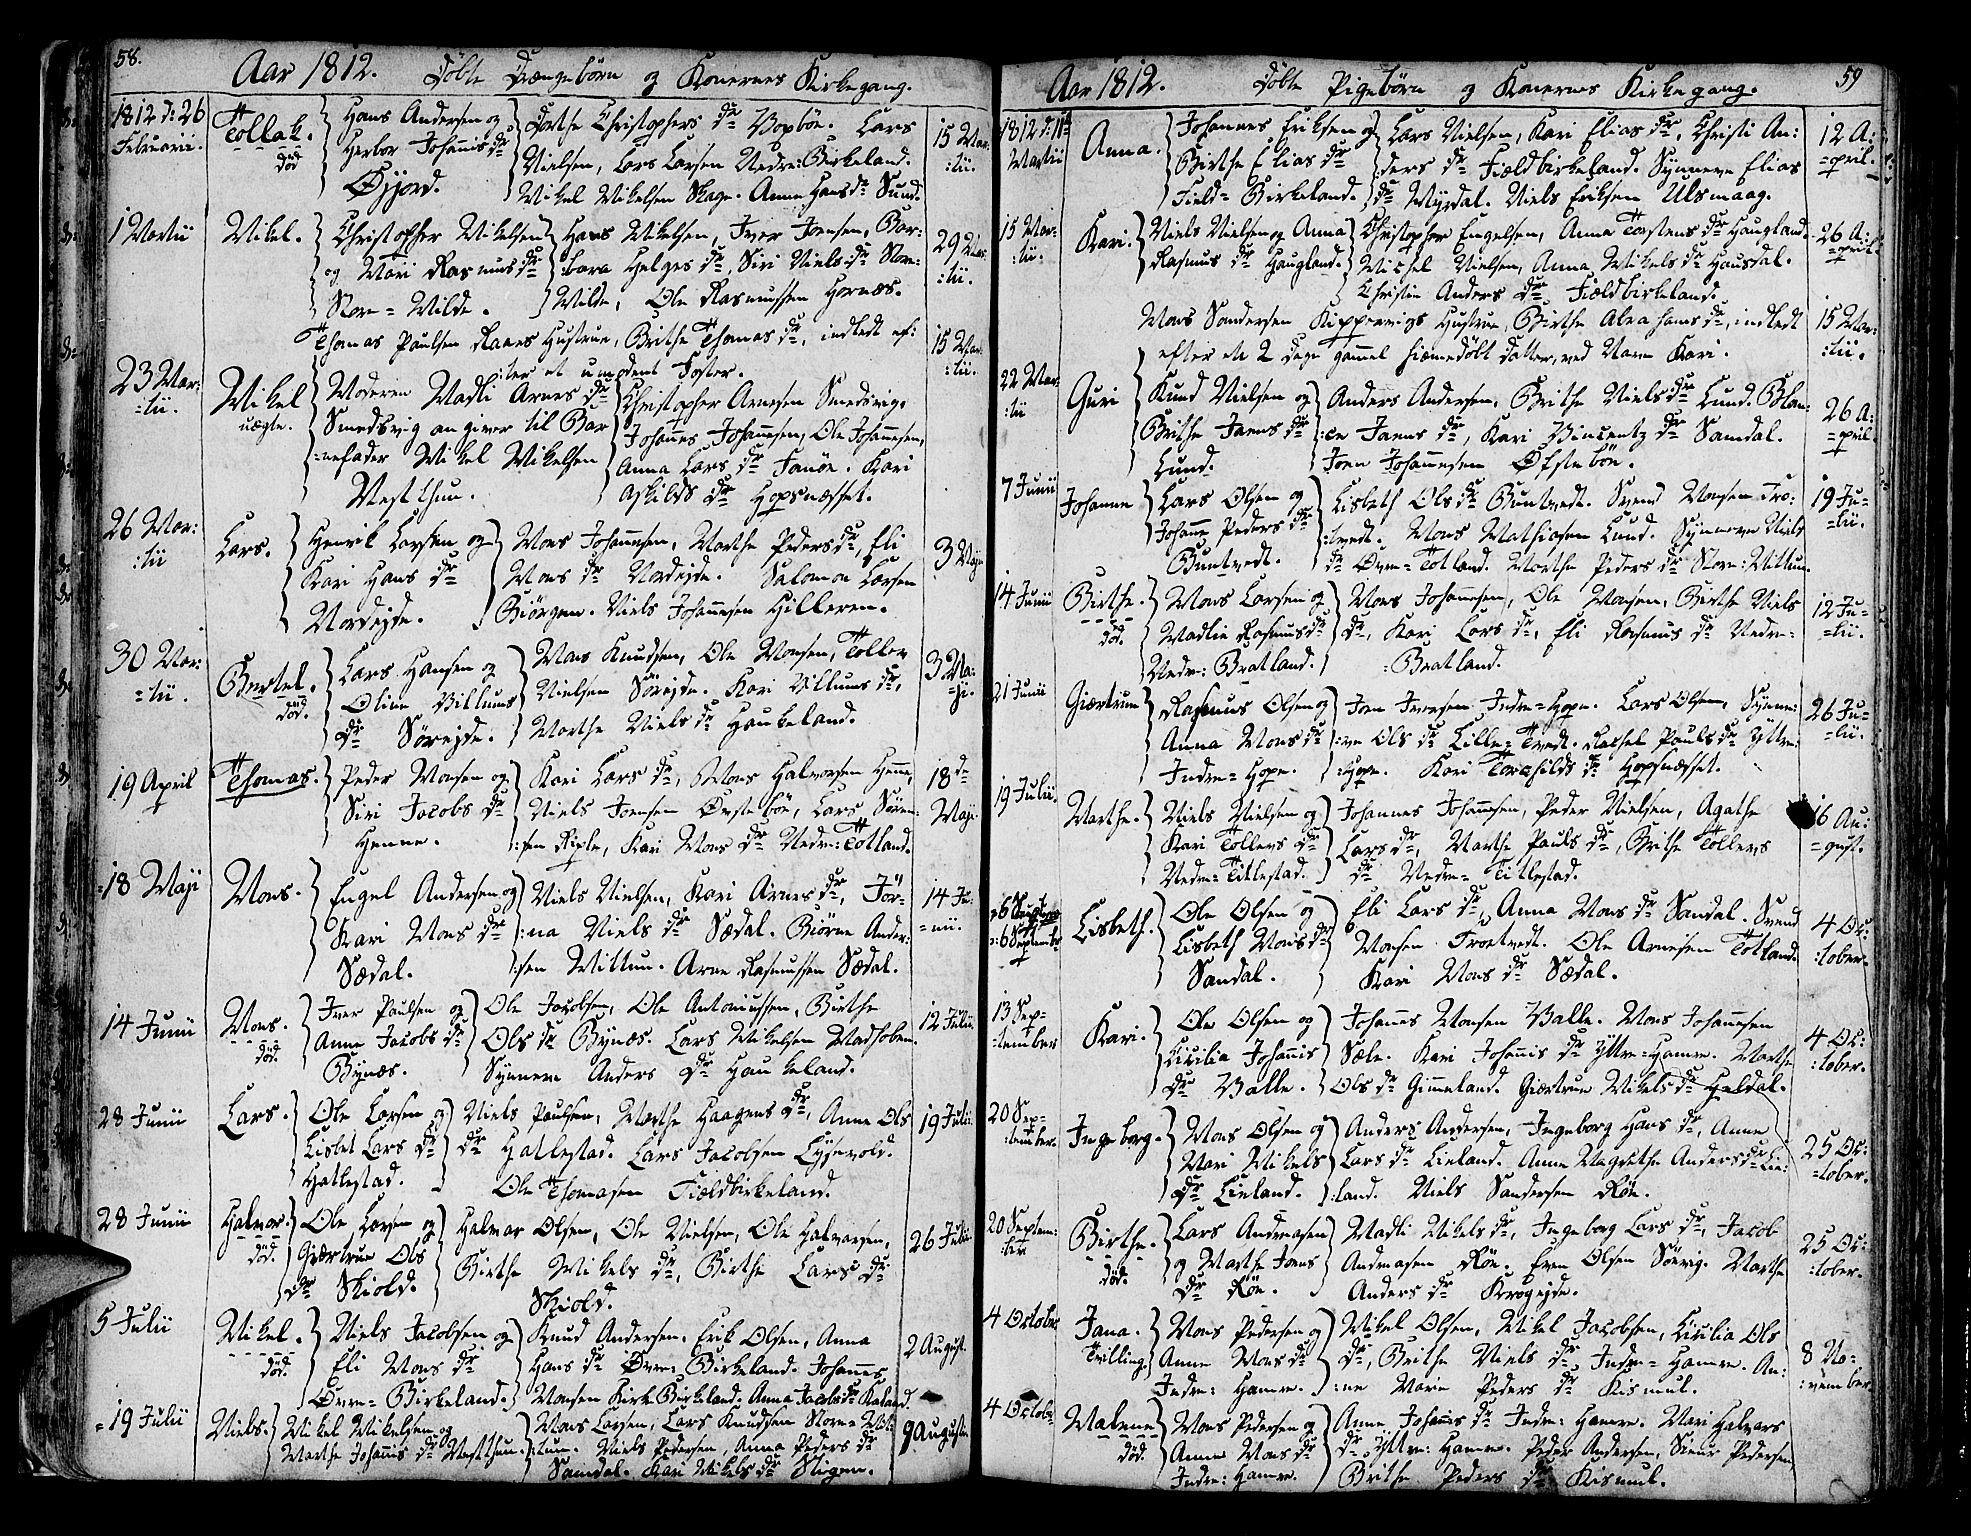 58.
Aar 1812. Døbte Drængebörn og Konernes Kirkegang.
1812 d: 26 Februarii.
Tollak. død
Hans Andersen og
Herbor Johannis dr
Øyjord.
Dorthe Christophers dr Vopböe. Lars
Nielsen, Lars Larsen Nedre-Birkeland.
Mikel Mikelsen Skage. Anne Hans dr Sund.
15 Mar:
:tii.
1 Martii
Mikel.
Christopher Mikelsen
og Mari Rasmus dr
Store-Milde.
Hans Mikelsen, Iver Joensen, Bar:
:bara Helges dr, Siri Niels dr Store:
Milde, Ole Rasmussen Hornæs.
29 Mar:
:tii.
Thomas Paulsen Raaes Hustrue, Brithe Thomas dr, indledt ef:
:ter et umodent Foster.
15 Mar:
:tii.
23 Mar:
=tii.
Mikel
uægte.
Moderen Madli Arnes dr
Smedsvig angiver til Bar
:nefader Mikel Mikelsen
Vestthun.
Christopher Arnesen Smedsvig.
Johannes Johannesen, Ole Johannesen,
Anna Lars dr Fanöe. Kari
Askilds dr Hopsnæsset.
26 Mar:
:tii
Lars.
Henrik Larsen og
Kari Hans dr
Nordejde.
Mons Johannesen, Marthe Peders dr, Eli
Mons dr Nordejde. Salomon Larsen
Biörgen. Niels Johannesen Hilleren.
3 Maji
30 Mar:
=tii.
Bertel.
død.
Lars Hansen og
Oline Villums
dr Sørejde.
Mons Knudsen, Ole Monsen, Toller
Nielsen Sörejde. Kari Villums dr,
Marthe Niels dr Haukeland.
3 Ma:
=ji.
19 April
Thomas.
Peder Monsen og
Siri Jacobs dr
Henne.
Kari Lars dr, Mons Halvorsen Henne,
Niels Joensen Øvsteböe, Lars Sören:
:sen Riple, Kari Mons dr Nedre-Totland.
18 d
Maji
18 Maji
Mons.
Engel Andersen og
Kari Mons dr
Sædal.
Niels Nielsen, Kari Arnes dr, Jör-
:na Niels dr Sædal. Biörne Ander:
:sen Mittun. Arne Rasmussen Sædal.
14 Ju:
=nii.
14 Junii
Mons.
død.
Iver Paulsen og
Anne Jacobs dr
Bynæs.
Ole Jacobsen, Ole Antoniussen, Birthe
Ols dr Bynæs. Lars Mikelsen Madhoben.
Synneve Anders dr Haukeland.
12 Julii.
28 Junii
Lars.
Ole Larsen og
Lisbet Lars dr
Hatlestad.
Niels Paulsen, Marthe Haagens dr, Anne Ols
dr Hatlestad. Lars Jacobsen Lysevold.
Ole Thomasen Fieldbirkeland.
19 Julii.
28 Junii
Halvor.
død.
Ole Larsen og
Giærtrue Ols
dr Skiold.
Halvor Olsen, Ole Nielsen, Ole Halvorsen,
Birthe Mikels dr, Birthe Lars dr
Skiold.
26 Julii
5 Julii
Mikel.
død.
Niels Jacobsen og
Eli Mons dr
Øvre-Birkeland.
Knud Andersen, Erik Olsen, Anna
Hans dr Øvre-Birkeland. Johannes
Monsen Kirk Birkeland. Anna Jacobs dr Kaland.
2 August.
19 Julii
Niels.
Mikel Mikelsen og
Marthe Johannis dr Vestthun.
Mons Larsen, Lars Knudsen Store-Mit:
:tun. Niels Pedersen, Anna Peders dr
Samdal. Kari Mikels dr Stigen.
9 August.
59
Aar 1812. Døbte Pigebörn og Konernes Kirkegang.
1812 d: 11
Martii
Anna.
Johannes Eriksen og
Birthe Elias dr
Field-Birkeland.
Lars Nielsen, Kari Elias dr, Christi An:
:ders dr Fieldbirkeland. Synneve Elias
dr Myrdal. Niels Eriksen Ulsmaag.
12 A:
=pril.
15 Mar-
:tii.
Kari.
Niels Nielsen og Anna
Rasmus dr Haugland.
Christopher Engelsen, Anna Torstens dr Haugland.
Michel Nielsen, Anna Mikels dr Hausdal.
Christie Anders dr Fieldbirkeland.
26 A:
=pril.
Mons Sandersen Kipperrigs Hustrue, Birthe Abrahams dr, indledt
efter et 2 dage gammel hiemedöbt datter, ved Navn Kari.
15 Mar:
:tii.
22 Mar:
:tii
Guri
Knud Nielsen og
Brithe Jaens dr
Lund.
Anders Andersen, Brithe Niels dr Lund. Blan:
:ce Jaens dr, Kari Vincentz dr Samdal.
Joen Johannesen Øfstebön.
26 A:
=pril.
7 Junii
Johanne
Lars Olsen og
Johanne Peders dr
Buntvedt.
Lisbeth Ols dr Buntvedt. Svend Monsen Tro:
:tvedt. Mons Mathiasen Lund. Synneve Niels
dr Øvre-Totland. Marthe Peders dr Store-Mittun.
19 Ju-
=lii.
14 Junii
Birthe.
død.
Mons Larsen og
Madlie Rasmus dr
Nedre-Bratland.
Mons Johannesen, Ole Monsen, Birthe Niels
dr, Kari Lars dr, Eli Rasmus dr Nedre-
=Bratland.
12 Ju=
=lii.
21 Junii
Giærtrue
Rasmus Olsen og
Anna Mons dr
Indre-Hope.
Joen Iversen Indre-Hope. Lars Olsen, Synne:
:ve Ols dr Lille-Tvedt. Rachel Pauls dr Yttre:
:Hope. Kari Torchilds dr Hopsnæsset.
26 Ju=
=lii.
19 Julii
Marthe.
Niels Nielsen og
Kari Tollers dr
Nedre-Titlestad.
Johannes Johannesen, Peder Nielsen, Agathe
Lars dr, Marthe Pauls dr, Brithe Tollers
dr Nedre-Titlestad.
16 Au:
=gust.
6 September
Lisbeth.
Ole Olsen og
Lisbeth Mons dr
Sandal.
Eli Lars dr, Anna Mons dr Sandal. Svend
Monsen Troetvedt. Ole Arnesen Totland.
Kari Mons dr Sædal.
4 Oc:
:tober.
13 Sep-
=tember
Kari.
Ole Olsen og
Cicilia Johannis
dr Valle.
Johannes Monsen Valle. Mons Johannesen
Sæle. Kari Johannis dr Yttre-Hamre. Marthe
Ols dr Gimmeland. Giærtrue Mikels dr Heldal.
4 Oc:
:tober.
20 Sep=
:tember.
Ingeborg.
Mons Olsen og
Mari Mikels
dr Lieland.
Anders Andersen, Ingeborg Hans dr, Anne
Lars dr Lieland. Anne Magrethe Anders dr Lie:
:land. Niels Sandersen Röe.
25 Oc:
:tober.
20 Septem:
:ber
Birthe.
død.
Lars Andreasen
og Marthe Jons
dr Röe.
Madli Mikels dr, Ingeborg Lars dr, Jacob
Andreasen Röe. Even Olsen Sörvig. Marthe
Anders dr Krogejde.
25 Oc:
:tober.
4 October
Jana.
Tvilling
Mons Pedersen og
Anne Mons dr
Indre-Hamre.
Mikel Olsen, Mikel Jacobsen, Cicilia Ols
dr, Brithe Niels dr Indre-Hamre. An:
:ne Marie Peders dr Kismul.
8 No=
:vember
4 October
Malene
død.
Mons Pedersen og
Anne Mons dr
Indre-Hamre.
Anne Johannes dr Indre-Hamre. Mari Halvors
dr Yttre-Hamre. Peder Andersen, Sieur Pedersen,
Brithe Peders dr Kismul.